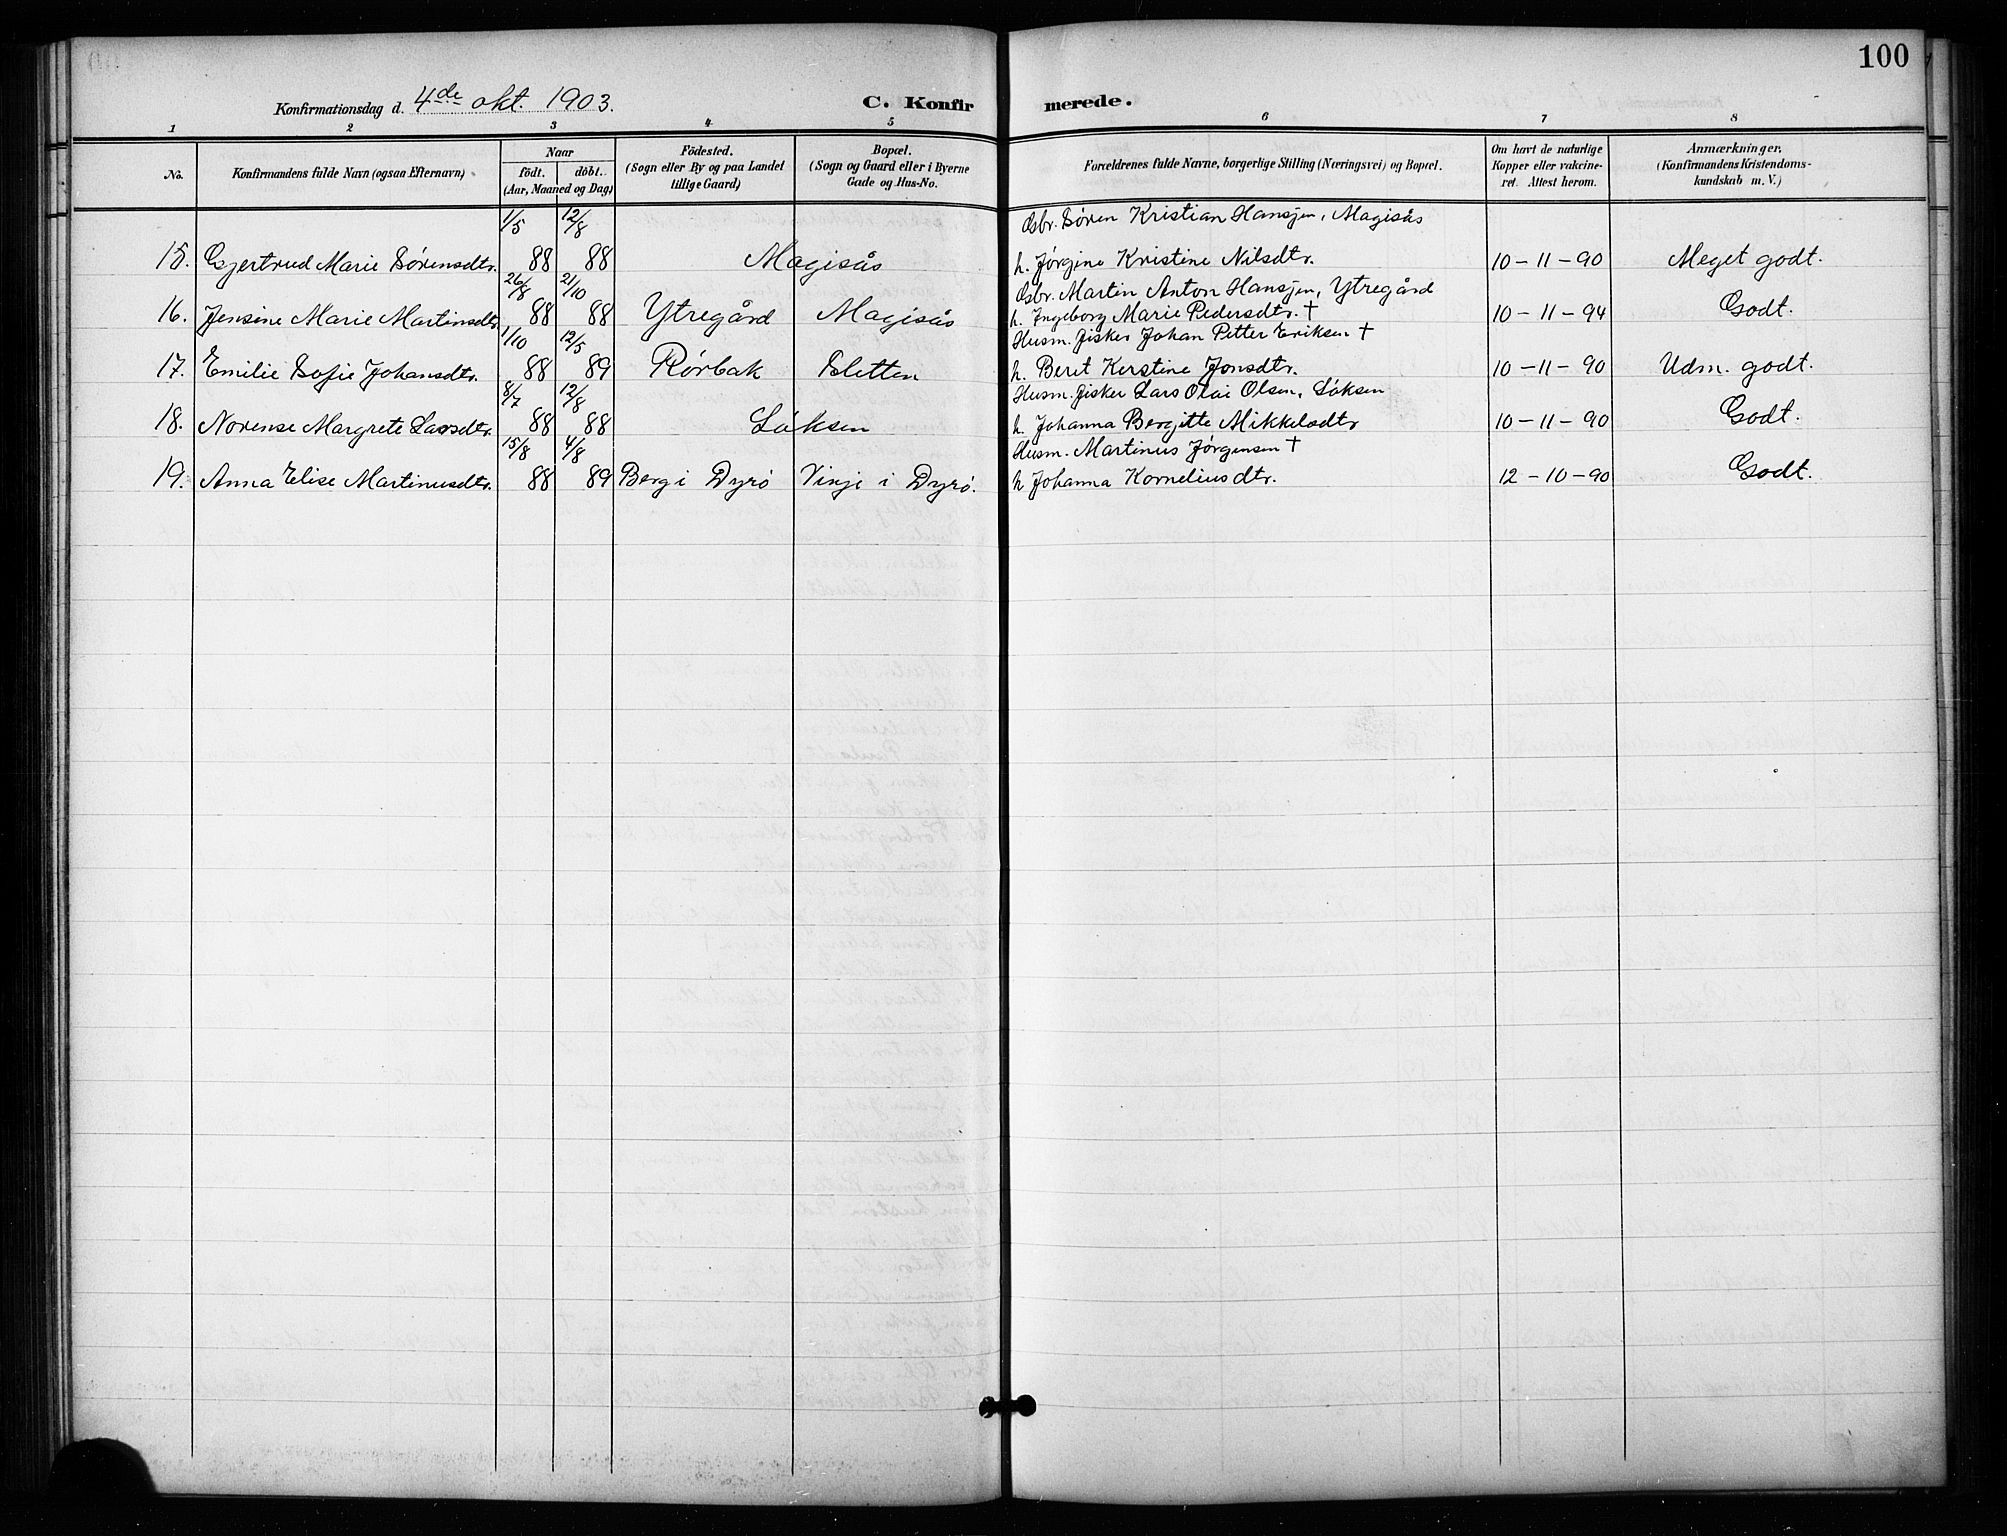 100
Konfirmationsdag d. 4de okt. 1903. C. Konfirmerede.
1 2 3 4 5 6 7 8
No. Konfirmandens fulde Navn (ogsaa Efternavn) Naar født. døbt. (Aar, Maaned og Dag) Födested. (Sogn eller By og paa Landet tillige Gaard) Bopæl. (Sogn og Gaard eller i Byerne Gade og Hus-No. Forældrenes fulde Navne, borgerlige Stilling (Næringsvei) og Bopæl. Om havt de naturlige Kopper eller vakcineret. Attest herom. Anmærkninger. (Konfirmandens Kristendomskundskab m. V.)
1/5 12/8 Gsbr. Søren Kristian Hansjen, Magisås
15. Gjertrud Marie Sørensdtr. 88 88 Magisås h. Jørgine Kristine Nilsdtr. 10-11-90 Meget godt.
26/8 21/10 Gsbr. Martin Anton Hansjen, Ytregård
16. Jensine Marie Martinsdtr. 88 88 Ytregård Magisås h. Ingeborg Marie Pedersdtr. † 10-11-94 Godt.
1/10 12/5 Husm. fisker Johan Petter Eriksen †
17. Emilie Sofie Johansdtr. 88 89 Rørbak Sletten h. Beret Kerstine Jonsdtr. 10-11-90 Udm. godt.
8/7 12/8 Husm. fisker Lars Olai Olsen, Løksen
18. Norense Margrete Larsdtr. 88 88 Løksen h. Johanna Bergitte Mikkelsdtr 10-11-90 Godt.
15/8 4/8 Husm. Martinus Jørgensen †
19. Anna Elise Martinusdtr. 88 89 Berg i Dyrø Vinje i Dyrø. h Johanna Korneliusdtr. 12-10-90 Godt.